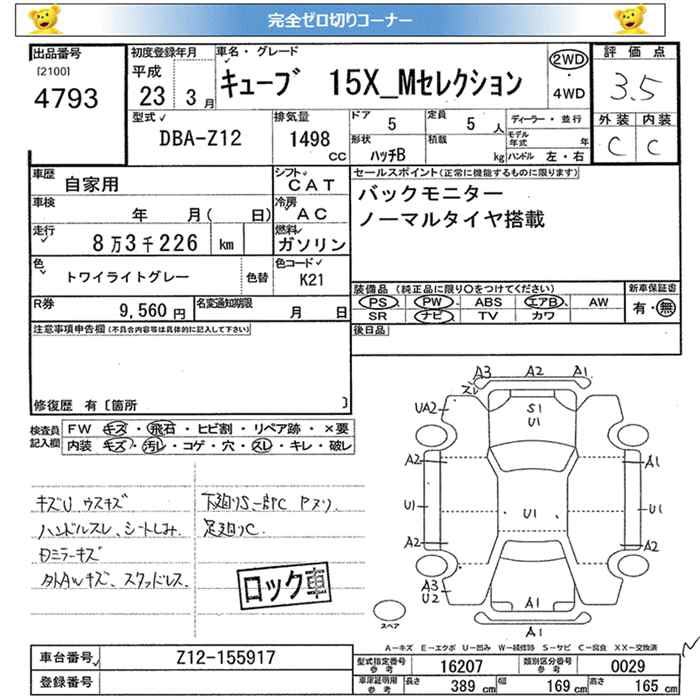 完全ゼロ切りコーナー
出品番号
[2100]
4793
初度登録年月
平成
23 3月
車名・グレード
キューブ 15X_Mセレクション
2WD
・
4WD
評価点
3.5
外装 内装
C C
型式
DBA-Z12
排気量
1498
CC
ドア 5
定員 5人
形状 ハッチB
積載 kg
ディーラー・並行
モデル年式 年
ハンドル 左・右
車歴 自家用
シフト CAT
車検 年 月( 日)
冷房 AC
走行 8万3千226 km
燃料 ガソリン
色 トワイライトグレー 色替
色コード K21
R券 9,560円
名変通知期限 月 日
セールスポイント(正常に機能するものに限ります)
バックモニター
ノーマルタイヤ搭載
装備品(純正品に限り○をつけてください)
新車保証書
PS PW ABS エアB AW
SR ナビ TV カワ
有・無
後日品
注意事項申告欄(不具合内容等は具体的に記入して下さい)
修復歴 有〔箇所 〕
検査員記入欄
FW キズ・飛石・ヒビ割・リペア跡・×要
内装 キズ・汚れ・コゲ・穴・スレ・キレ・破レ
キズU ウスキズ
ハンドルスレ、シートしみ
スクアッドレス
下廻りS一部C Pヌリ
足廻りC
ロック車
A3 A2 A1
スレ
UA2
S1
U1
A2 A1
U1 U1 U1
A2 A2
A3
U2
A1
A1
スペア
A−キズ E−エクボ U−凹み W−補修跡 S−サビ C−腐食 XX−交換済
車台番号 Z12-155917
登録番号
型式指定番号参考 16207
類別区分番号参考 0029
車庫証明用参考 長さ 389cm 幅 169cm 高さ 165cm